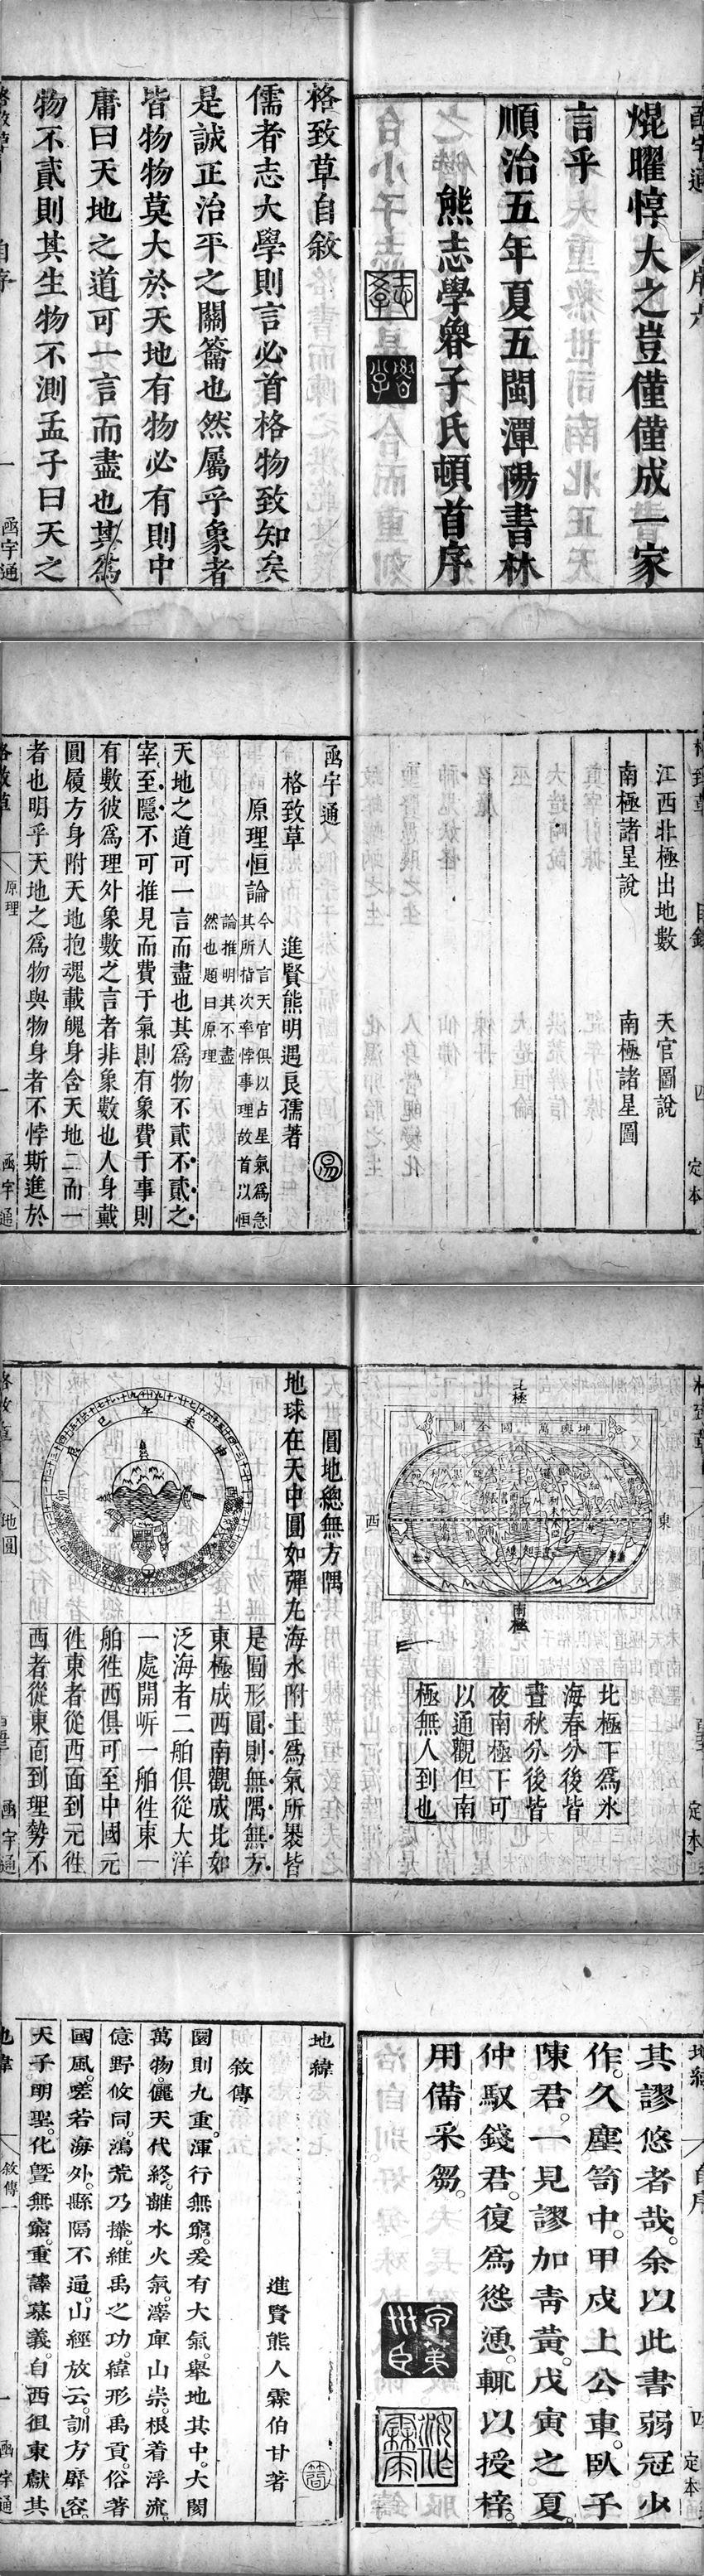 焜曜惇大之豈僅僅成一家
言乎
順治五年夏五閩潭陽書林
熊志學魯子氏頓首序
格致草自敘
儒者志大學則言必首格物致知矣
是誠正治平之關籥也然屬乎象者
皆物物莫大於天地有物必有則中
庸曰天地之道可一言而盡也其爲
物不貳則其生物不測孟子曰天之
自序
一
函宇通
目錄
四
定本
江西北極出地數
天官圖說
南極諸星說
南極諸星圖
函宇通
格致草
進賢熊明遇良孺著
原理恒論
今人言天官俱以占星氣爲急
其所指次率悖事理故首以恒
論推明其不盡
然也題曰原理
天地之道可一言而盡也其爲物不貳不貳之
宰至隱不可推見而費于氣則有象費于事則
有數彼爲理外象數之言者非象數也人身戴
圓履方身附天地抱魂載魄身含天地二而一
者也明乎天地之爲物與物身者不悖斯進於
格致草
原理
一
函宇通
北極
坤輿萬國全圖
東
西
南極
北極下爲氷
海春分後皆
晝秋分後皆
夜南極下可
以通觀但南
極無人到也
定本
圓地總無方隅
地球在天中圓如彈丸海水附土爲氣所褁皆
是圓形圓則無隅無方
東極成西南觀成北如
泛海者二舶俱從大洋
一處開岍一舶徃東一
舶徃西俱可至中國元
徃東者從西面到元徃
西者從東面到理勢不
午
未
申
巳
辰
卯
酉
格致草
地圓
函宇通
地緯
自序
四
定本
其謬悠者哉。余以此書弱冠少
作。久塵笥中。甲戍上公車。臥子
陳君。一見謬加靑黃。戊寅之夏。
仲馭錢君。復爲慫慂。輒以授梓。
用備采芻。
地緯
進賢熊人霖伯甘著
敘傳
圜則九重。渾行無窮。爰有大氣。舉地其中。大閡
萬物。儷天代終。離水火氣。澤庳山崇。根着浮流。
億野攸同。鴻荒乃搽。維禹之功。緯形禹貢。俗著
國風。嗟若海外。縣隔不通。山經放云。訓方靡容。
天子明聖。化曁無窮。重譯慕義。自西徂東獻其
地緯
敘傳一
一
函宇通